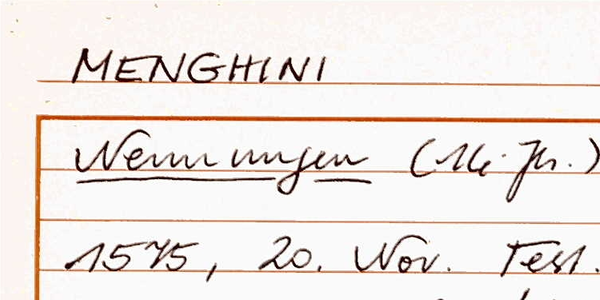 MENGHINI
Nennungen (16. Jh.)
1575, 20. Nov. Test.